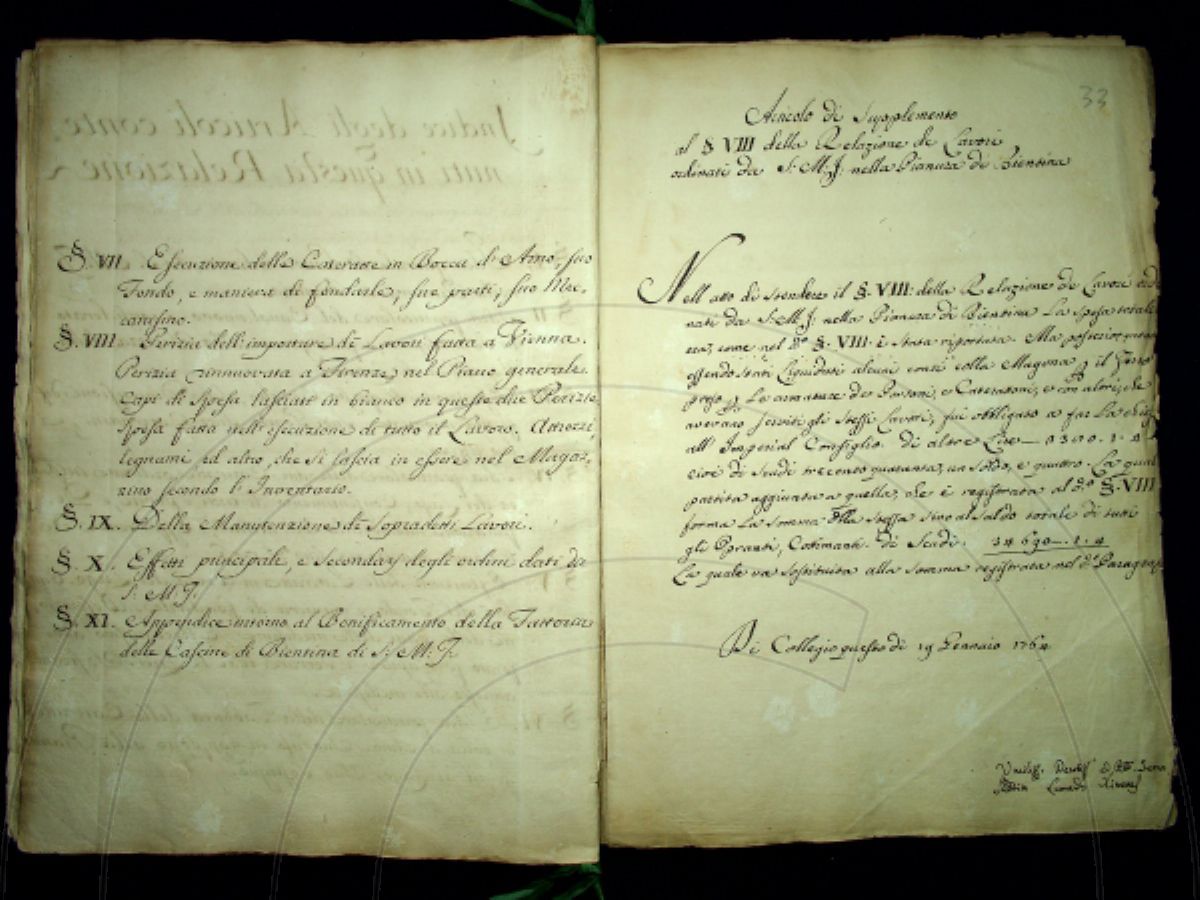 §. VII. Esecuzione delle Cateratte in Bocca d'Arno, suo
Fondo, e maniera di fondarle, sue parti, suo Mec-
canismo.
§. VIII. Perizia dell'importare de Lavori fatta a Vienna.
Perizia rinnuovata a Firenze, nel Piano generale.
Capi di Spesa lasciati in bianco in queste due Perizie.
Spesa fatta nell'esecuzione di tutto il Lavoro. Attrezzi,
legnami ed altro, che si lascia in essere nel Magaz-
zino secondo l'Inventario.
§. IX. Della Manutenzione de Sopradetti Lavori.
§. X. Effetti principali, e Secondarj degli ordini dati da
S. M. J.
§. XI. Appendice intorno al Bonificamento della Fattoria
delle Cascine di Bientina di S: M: J.
33
Articolo di Supplemento
al § VIII della Relazione de Lavori
ordinati da S: M. J: nella Pianura di Bientina
Nell atto di stendere il §. VIII: della Relazione de Lavori
nati da S: M. J. nella Pianura di Bientina La Spesa totale
come nel do §. VIII. è stata riportata. Ma
essendo stati Liquidati alcuni conti colla Magona il ferro
preso Le armature de Portoni, e Cateratte, e con altri, che
avevano serviti gli stessi Lavori, fui obbligato a far La
all' Imperial Consiglio di altre Lire
cioè di Scudi trecento quaranta, un soldo, e quattro. La qual
partita aggiunta a quella, che è registrata al do §. VIII
forma La somma stessa sino al saldo totale di tutti
gli Opranti, Cottimanti di Scudi. 34690.1.4
La quale va sostituita alla somma registrata nel do Paragrafo
Di Collegio questo dì 19 Gennaio 1764
Leonardo Ximenes